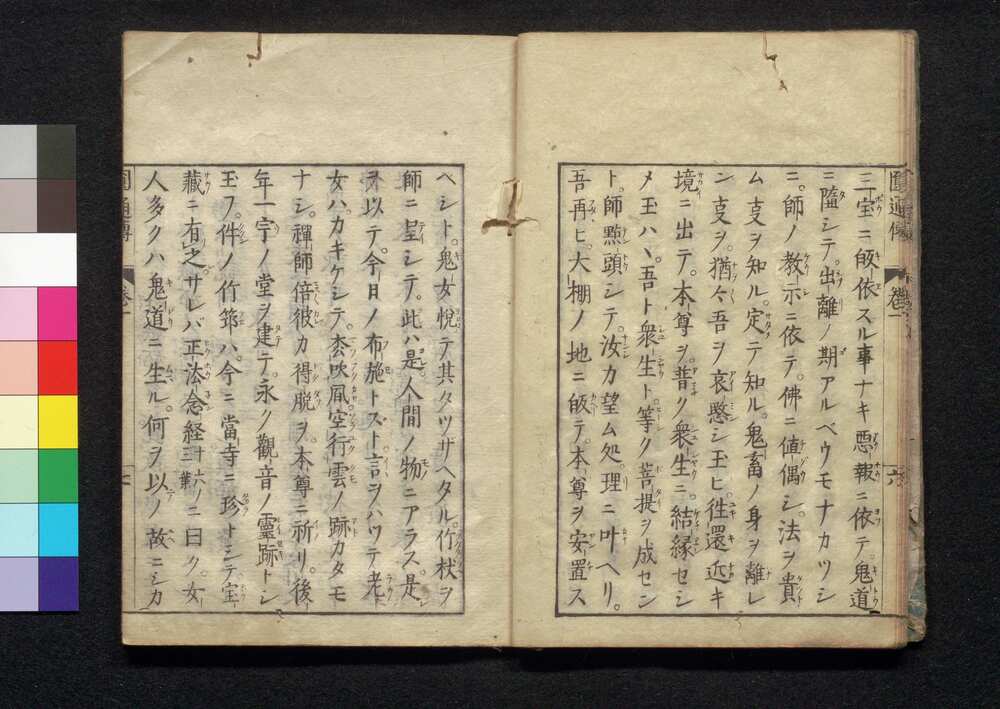 三宝ニ皈依スル事ナキ悪報ニ依テ鬼道
ニ墮シテ出離ノ期アルベウモナカツシ
ニ。師ノ教示ニ依テ。佛ニ値偶シ。法ヲ貴
ム㕝ヲ知ル。定テ知ル。鬼畜ノ身ヲ離レ
ン㕝ヲ。猶々吾ヲ哀愍シ玉ヒ。徃還近キ
境ニ出テ。本尊ヲ普ク衆生ニ。結縁セシ
メ玉ハヽ。吾ト衆生ト。等ク菩提ヲ成セン
ト。師㸃頭シテ。汝カ望ム処。理ニ叶ヘリ。
吾再ヒ。大棚ノ地ニ皈テ。本尊ヲ安置ス
ベシト。鬼女悦テ其タツサヘタル。竹杖ヲ
師ニ呈シテ。此ハ是。人間ノ物ニアラス。是
ヲ以テ。今日ノ布施トスト。言ヲハツテ老
女ハカキケシテ。松吹風空行雲ノ跡カタモ
ナシ。禅師倍彼カ得脱ヲ。本尊ニ祈リ。後
年一宇ノ堂ヲ建テ。永ク觀音ノ靈跡トシ
玉フ。件ノ竹筇ハ。今ニ當寺ニ珍トシテ宝
藏ニ有之。サレバ正法念経三十六葉ノニ曰ク。女
人多クハ鬼道ニ生ル。何ヲ以ノ故ニシカ
圓通傳
巻一
六
圓通傳
巻一